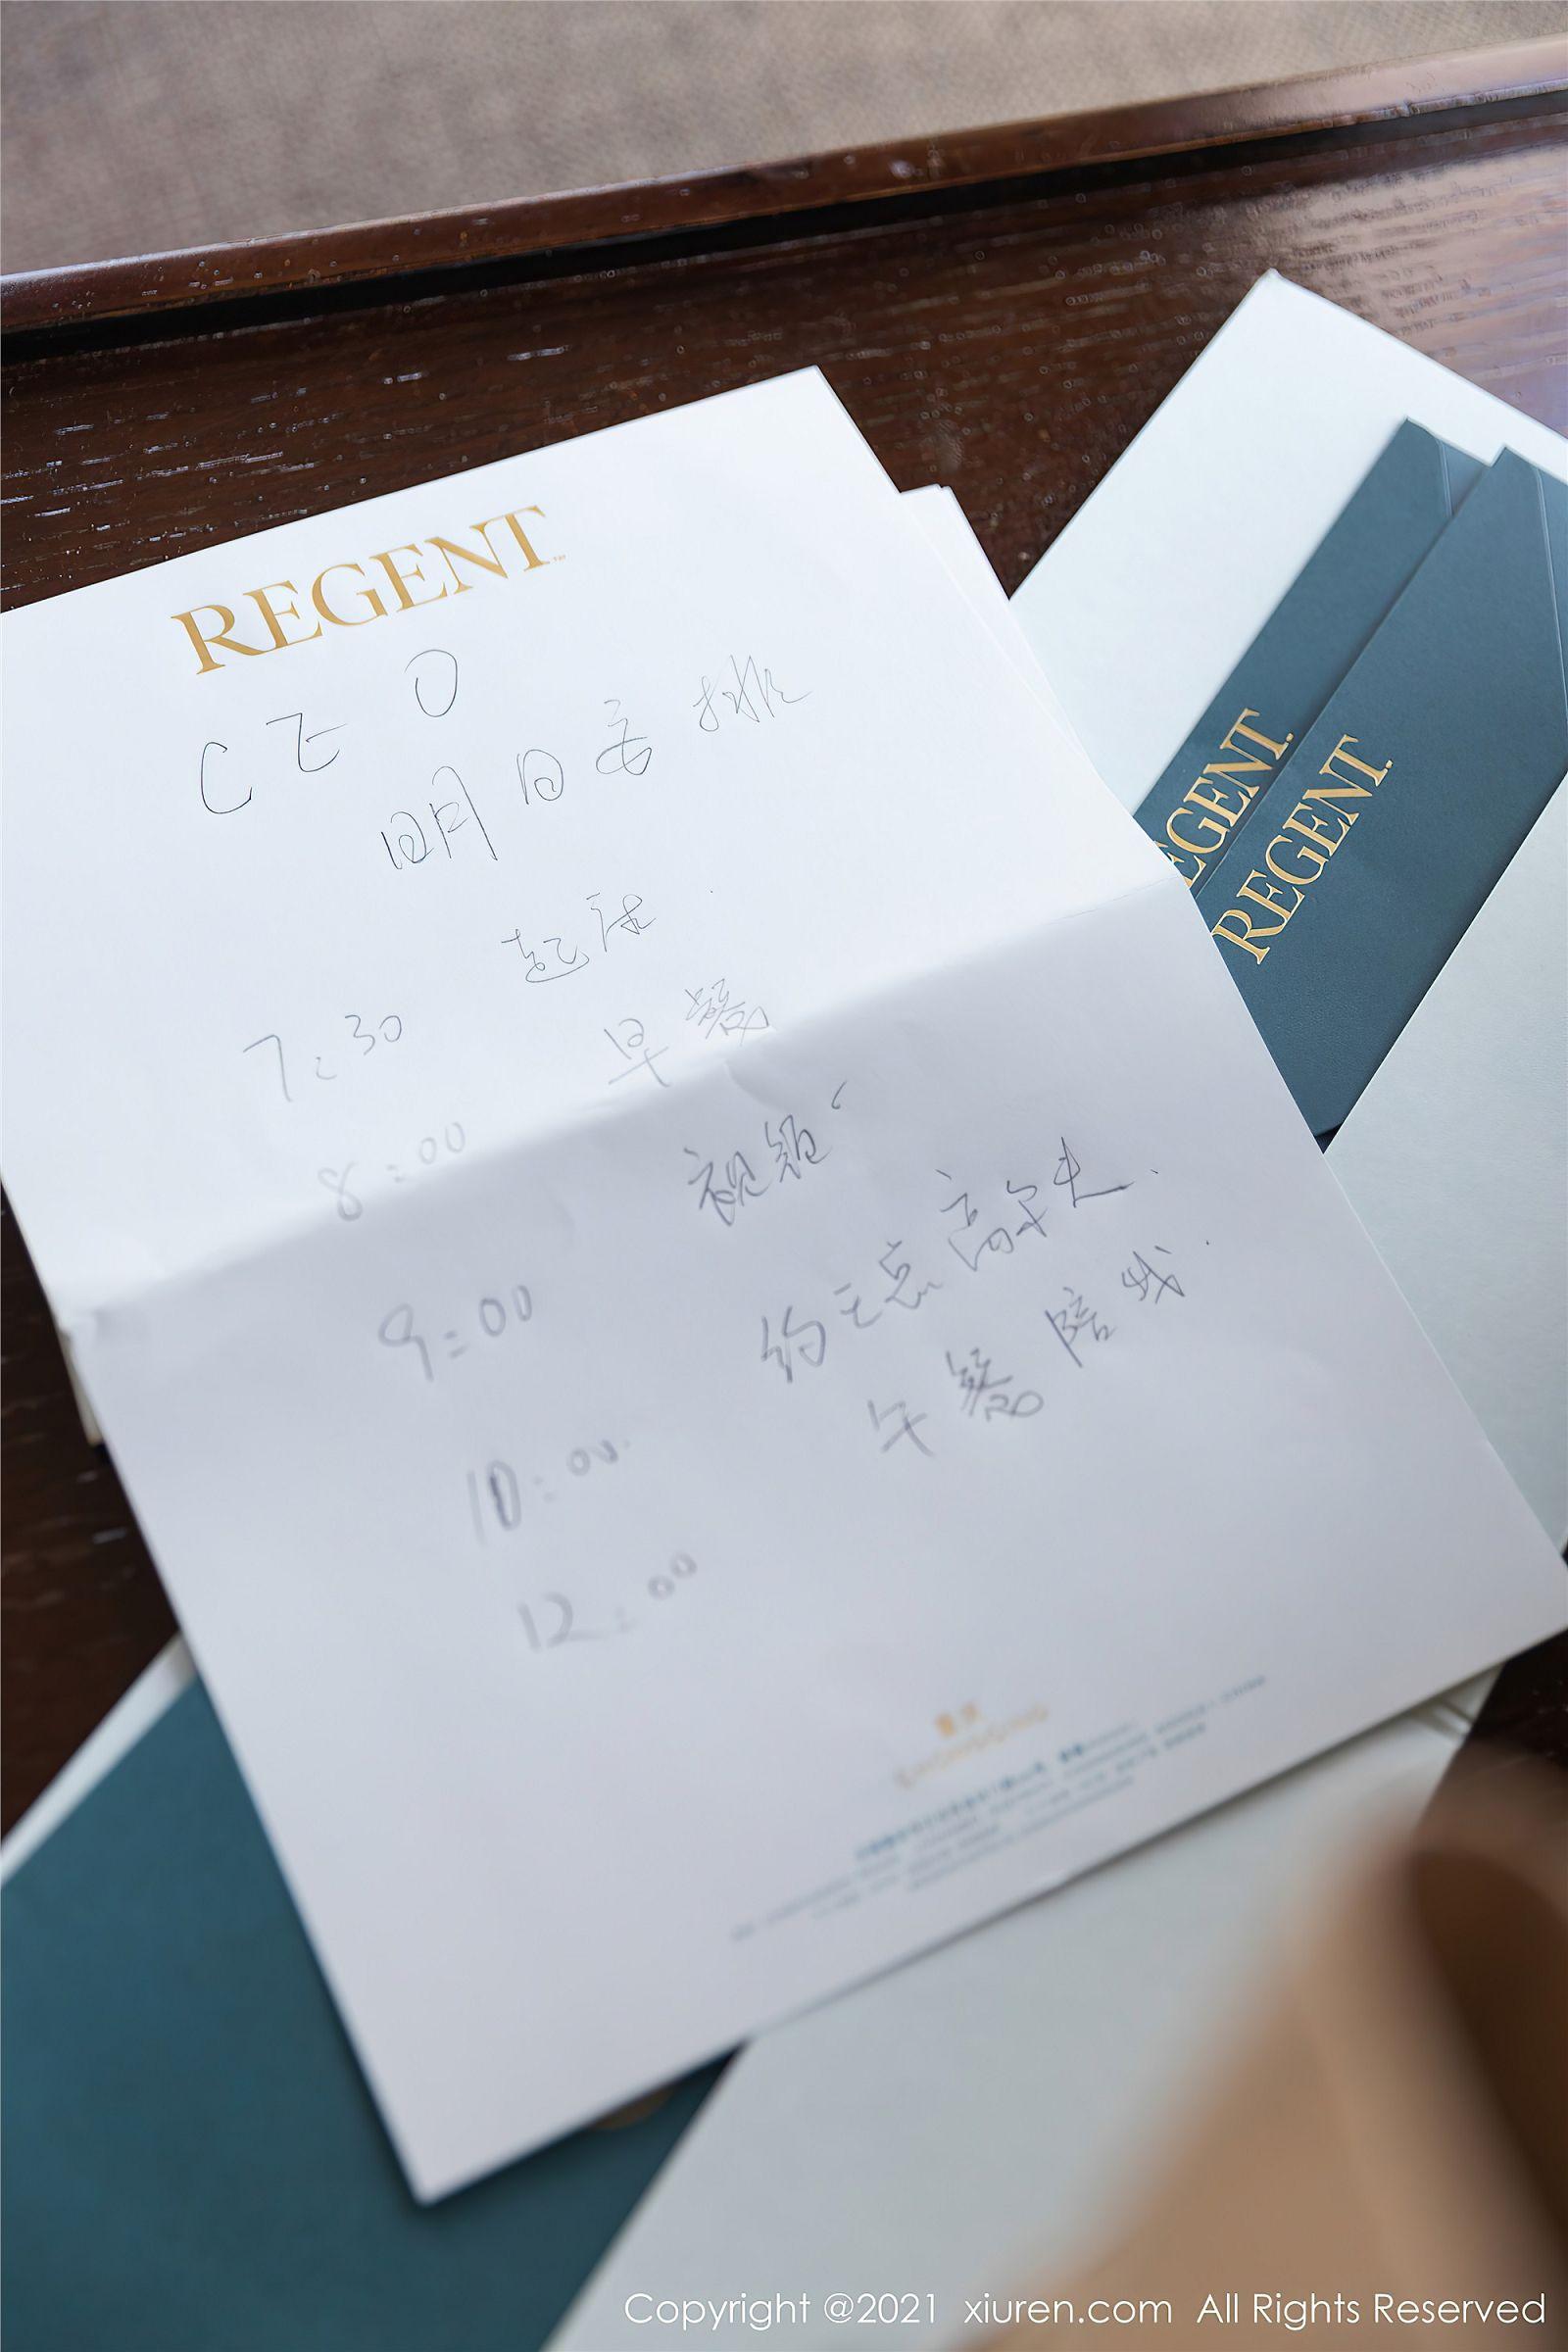 REGENT
CEO
明日安排
7:30 起床
8:00 早餐
9:00 视频
10:00 约王总高尔夫.
12:00 午餐 陪我.
重庆
CHONGQING
EGENT
REGENT
Copyright @2021 xiuren.com All Rights Reserved